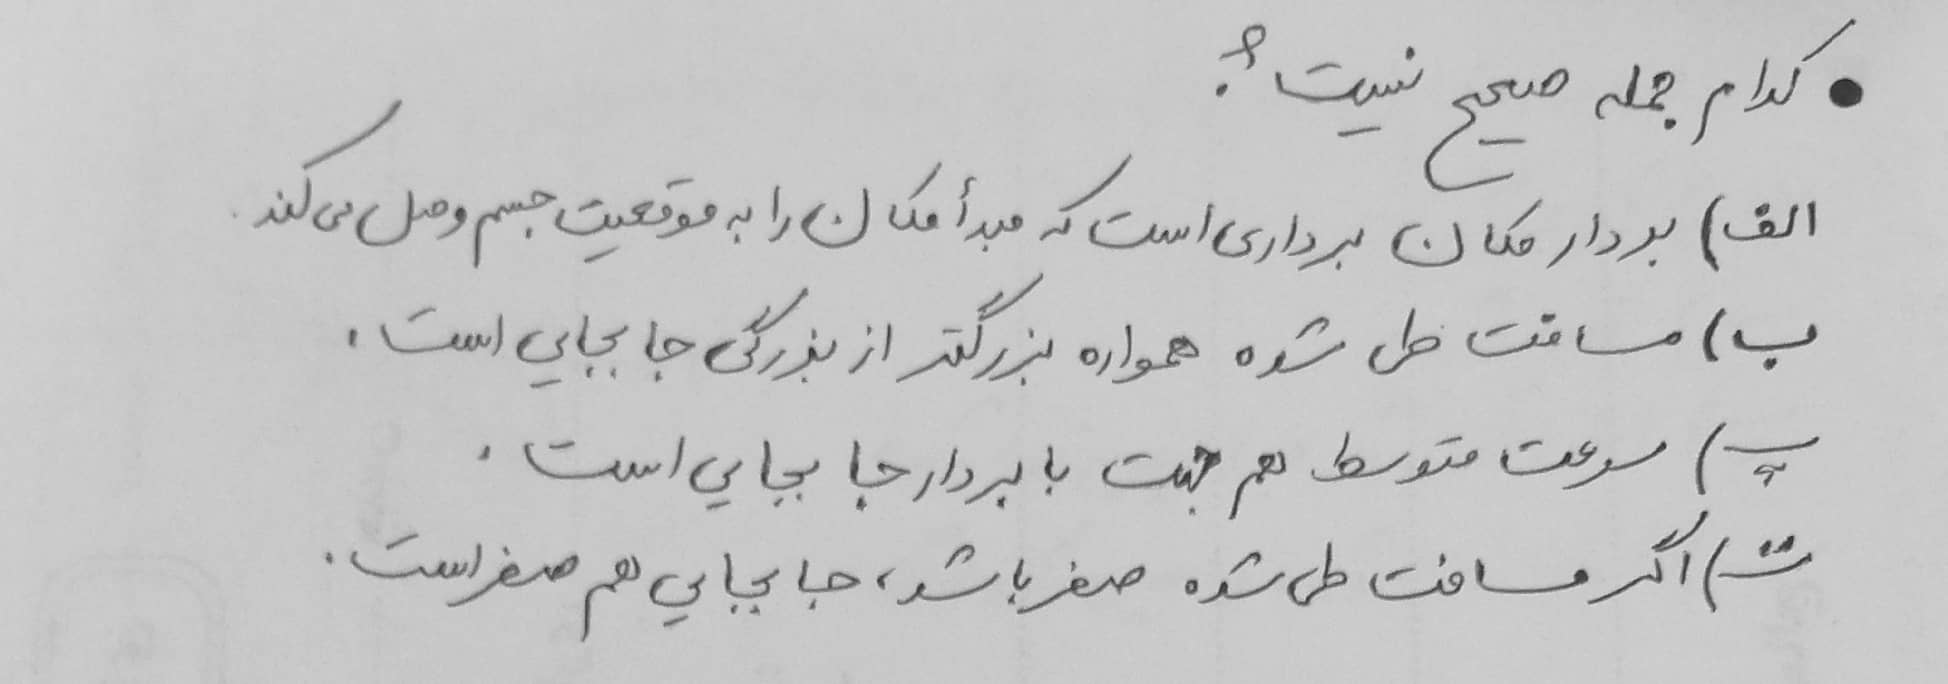 • کدام جمله صحیح نیست؟
الف) بردار مکان برداری است که مبدأ مکان را به موقعیت جسم وصل می‌کند.
ب) مسافت طی شده همواره بزرگتر از بزرگی جابجایی است.
پ) سرعت متوسط هم جهت با بردار جابجایی است.
ت) اگر مسافت طی شده صفر باشد، جابجایی هم صفر است.